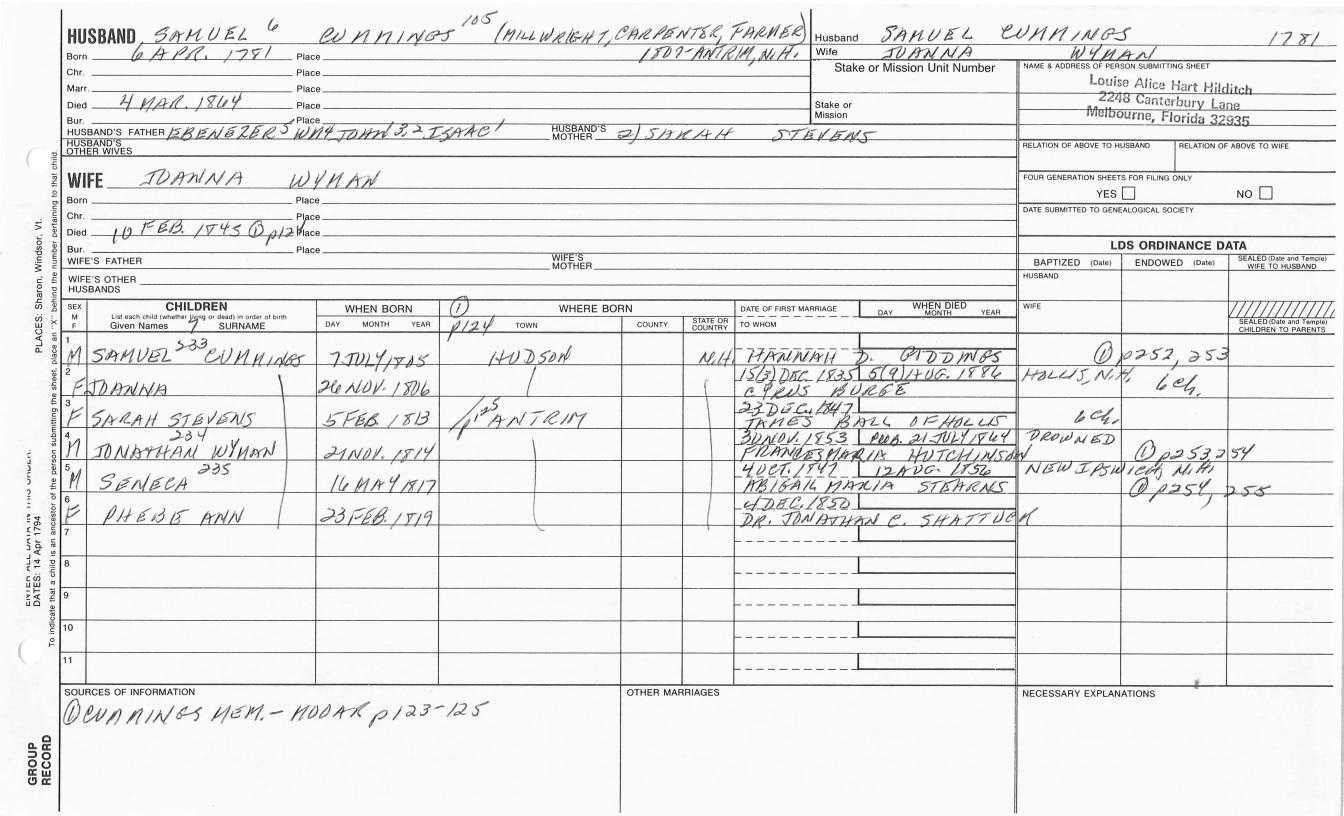 HUSBAND SAMUEL 6 CUMMINGS 105 (MILLWRIGHT, CARPENTER, FARMER)
Born 6 APR. 1781 Place 1807-ANTRIM, N.H.
Chr. Place
Marr. Place
Died 4 MAR. 1864 Place
Bur. Place
HUSBAND'S FATHER EBENEZER5 WM4 JOHN3,2 ISAAC1 HUSBAND'S MOTHER 2) SARAH STEVENS
HUSBAND'S OTHER WIVES
Husband SAMUEL CUMMINGS 1781
Wife JOANNA WYMAN
Stake or Mission Unit Number
Stake or Mission
NAME & ADDRESS OF PERSON SUBMITTING SHEET
Louise Alice Hart Hilditch
2248 Canterbury Lane
Melbourne, Florida 32935
RELATION OF ABOVE TO HUSBAND RELATION OF ABOVE TO WIFE
FOUR GENERATION SHEETS FOR FILING ONLY
YES NO
DATE SUBMITTED TO GENEALOGICAL SOCIETY
WIFE JOANNA WYMAN
Born Place
Chr. Place
Died 10 FEB. 1845 ① p124 Place
Bur. Place
WIFE'S FATHER WIFE'S MOTHER
WIFE'S OTHER HUSBANDS
LDS ORDINANCE DATA
BAPTIZED (Date) ENDOWED (Date) SEALED (Date and Temple) WIFE TO HUSBAND
HUSBAND
WIFE
SEALED (Date and Temple) CHILDREN TO PARENTS
SEX M F
CHILDREN
List each child (whether living or dead) in order of birth
Given Names 7 SURNAME
WHEN BORN
DAY MONTH YEAR
① p124
WHERE BORN
TOWN COUNTY STATE OR COUNTRY
DATE OF FIRST MARRIAGE
TO WHOM
WHEN DIED
DAY MONTH YEAR
1 M SAMUEL 233 CUMMINGS 7 JULY 1805 HUDSON N.H. HANNAH D. GIDDINGS ① p252, 253
2 F JOANNA 26 NOV. 1806 15(3) DEC. 1835 5(9) AUG. 1886 HOLLIS, N.H. 6 ch.
CYRUS BURGE
3 F SARAH STEVENS 5 FEB. 1813 p125 ANTRIM 23 DEC. 1847 6 ch.
JAMES BALL OF HOLLIS
4 M JONATHAN WYMAN 234 21 NOV. 1814 30 NOV. 1853 PROB. 21 JULY 1864 DROWNED
FRANCES MARIA HUTCHINSON ① p253, 254
5 M SENECA 235 16 MAY 1817 4 OCT. 1847 12 AUG. 1856 NEW IPSWICH, N.H.
ABIGAIL MARIA STEARNS ① p254, 255
6 F PHEBE ANN 23 FEB. 1819 4 DEC. 1850
DR. JONATHAN C. SHATTUCK
7
8
9
10
11
SOURCES OF INFORMATION
① CUMMINGS MEM.- MOOAR p123-125
OTHER MARRIAGES
NECESSARY EXPLANATIONS
PLACES: Sharon, Windsor, Vt.
DATES: 14 Apr 1794
To indicate that a child is an ancestor of the person submitting the sheet, place an "X" behind the number pertaining to that child.
GROUP RECORD